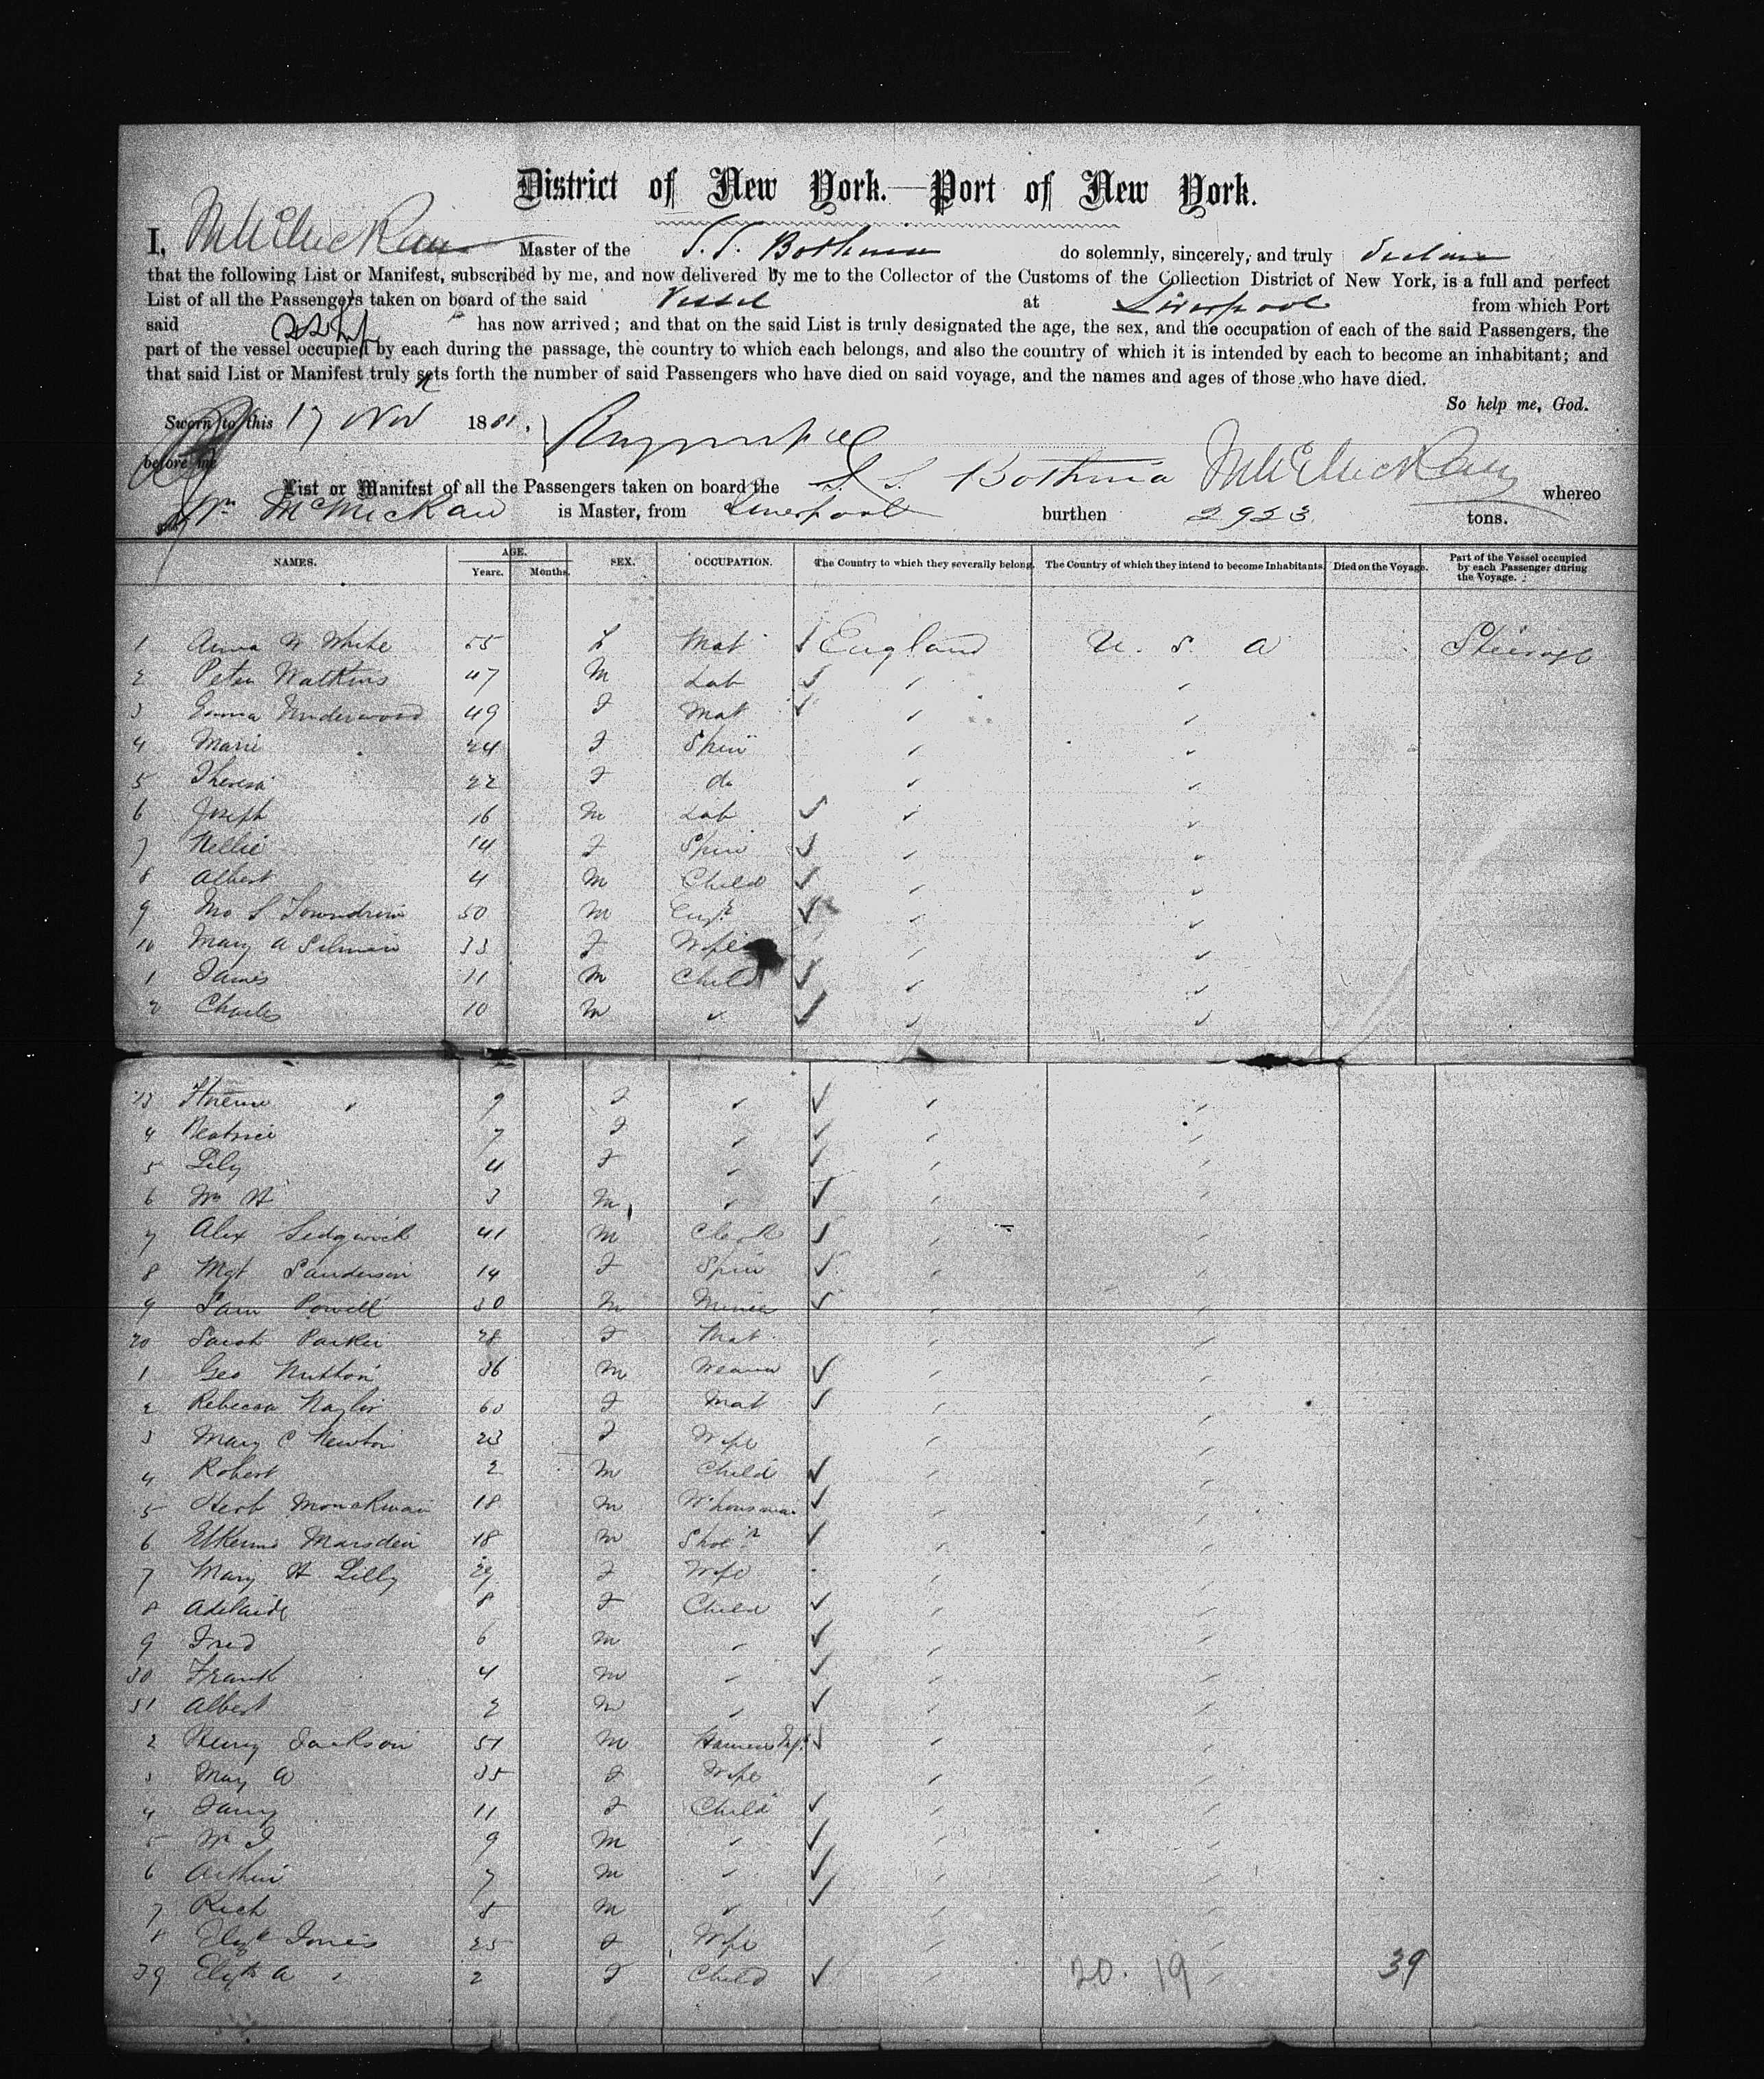 District of New York.—Port of New York.
I, Master of the S.S. Bothnia do solemnly, sincerely, and truly declare
that the following List or Manifest, subscribed by me, and now delivered by me to the Collector of the Customs of the Collection District of New York, is a full and perfect
List of all the Passengers taken on board of the said Vessel at Liverpool from which Port
said has now arrived; and that on the said List is truly designated the age, the sex, and the occupation of each of the said Passengers, the
part of the vessel occupied by each during the passage, the country to which each belongs, and also the country of which it is intended by each to become an inhabitant; and
that said List or Manifest truly sets forth the number of said Passengers who have died on said voyage, and the names and ages of those who have died.
So help me, God.
Sworn to this 17 Nov 1881.
before me
List or Manifest of all the Passengers taken on board the S. S. Bothnia whereo
Wm McMickan is Master, from Liverpool burthen 2923 tons.
NAMES. AGE. Years. Months. SEX. OCCUPATION. The Country to which they severally belong. The Country of which they intend to become Inhabitants. Died on the Voyage. Part of the Vessel occupied by each Passenger during the Voyage.
1 Anna W White 55 Mat England U. S. A Steerage
2 Peter Watkins 47 M Lab
3 Emma Underwood 49 F Mat
4 Marie 24 F Spin
5 Theresa 22 F do
6 Joseph 16 M Lab
7 Nellie 14 F Spin
8 Albert 4 M Child
9 Jno S 50 M Engr
10 Mary A 33 F Wife
1 James 11 M Child
2 Charles 10 M
13 Florence 9 F
4 Beatrice 7 F
5 Lily 4 F
6 Wm H 3 M
7 Alex Sedgwick 41 M Clerk
8 Mgt Sanderson 14 F Spin
9 Sam Powell 30 M Miner
20 Sarah Parker 28 F Mat
1 Geo Hutton 36 M Weaver
2 Rebecca Naylor 60 F Mat
3 Mary C Newton 23 F Wife
4 Robert 2 M Child
5 Herb 18 M W'housman
6 Marsden 18 M
7 Mary H Lilly 29 F Wife
8 Adelaide 8 F Child
9 Fred 6 M
30 Frank 4 M
31 Albert 2 M
2 Henry Jackson 51 M
3 Mary A 35 F Wife
4 Fanny 11 F Child
5 Wm J 9 M
6 Arthur 7 M
7 Rich 5 M
8 Elizth Jones 25 F Wife
39 Elizth A 2 F Child 20. 19 39